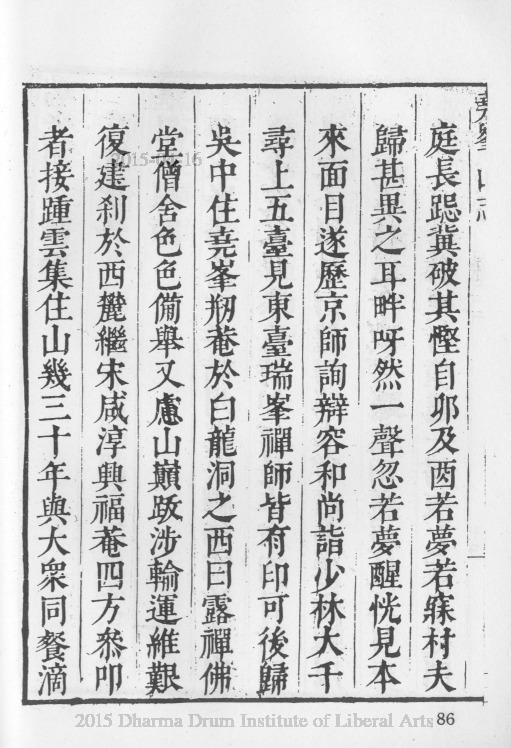 庭長跽冀破其慳自卯及酉若夢若寐村夫
歸甚異之耳畔呀然一聲忽若夢醒恍見本
來面目遂歷京師詢辯容和尚詣少林大千
尋上五臺見東臺瑞峯禪師皆有印可後歸
吳中住堯峯刱菴於白龍洞之西曰露禪佛
堂僧舍色色備舉又慮山巔跋涉輸運維艱
復建刹於西麓繼宋咸淳興福菴四方叅叩
者接踵雲集住山幾三十年與大衆同餐滴
2015 Dharma Drum Institute of Liberal Arts
86